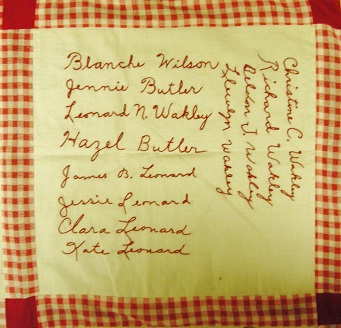 Blanche Wilson
Jennie Butler
Leonard N. Wakley
Hazel Butler
James B. Leonard
Jessie Leonard
Clara Leonard
Kate Leonard
Christine C. Wakley
Richard Wakley
Deldon J. Wakley
Llewlyn Wakley